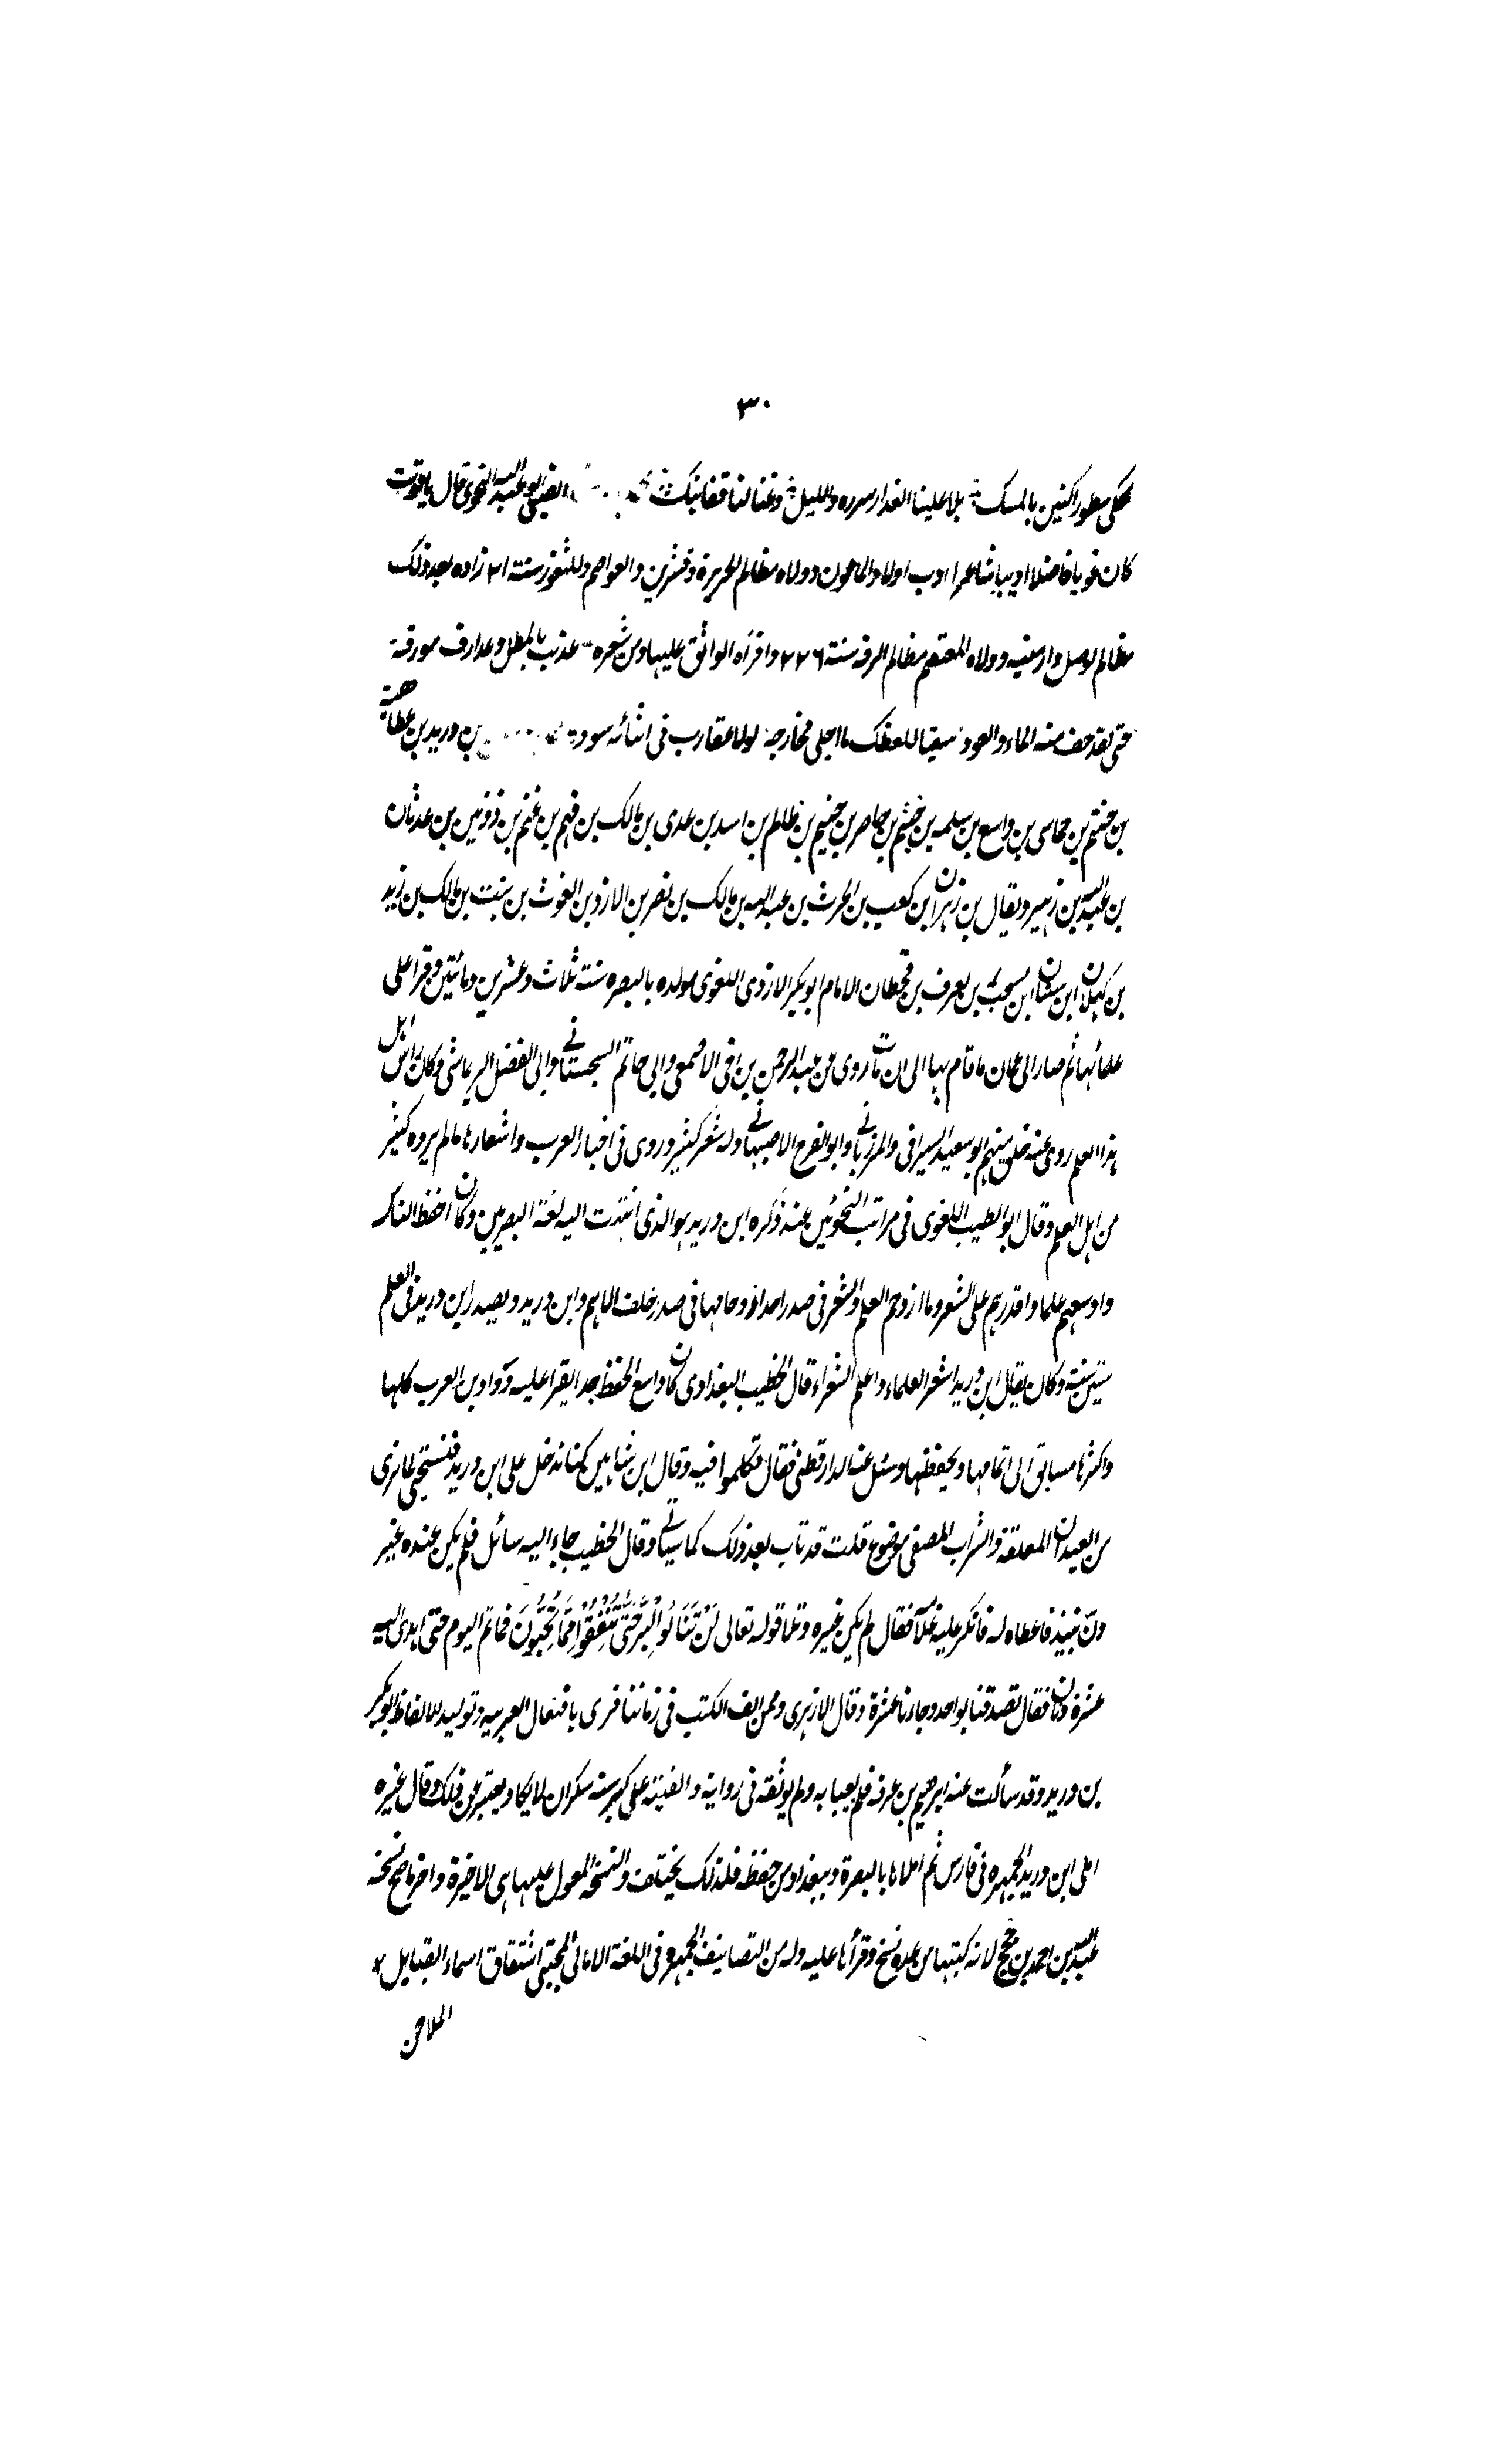 ٣٠
تحكى سطور اكتبن بالمسك بلا علينا العذار سرره والليل وغنا لنا قفا نبك الضبى ابو عبد الله النحوى قال ياقوت
كان نحويا فاضلا اديبا شاعرا ادب اولاد المامون وولاه مظالم الجزيرة وقنسرين والعواصم والثغور سنة ٢١ زاده بعد ذلك
مظالم الموصل وارمنيه وولاه المعتصم مظالم الرقه سنة ٢٢٦ واقراه الواثق عليها ومن شعره عذبت بالمطل وعدا رف مورقه
حتى لقد جف منه الماء والعود سقيا للعظك ما احلى مخارجه لولا عقارب فى اثنائه سود بن دريد بن عطاهية
بن حنتم بن حمامى بن واسع بن سلمه بن جشم بن حاضر بن جشيم بن ظالم بن اسد بن عدى بن مالك بن فهم بن غنم بن دوس بن عدثان
بن عبد الله بن زهير ويقال بن زهران ابن كعب بن الحرث بن عبد الله بن مالك بن نصر بن الازد بن الغوث بن بنت بن مالك بن زيد
بن كهلان ابن سبا ابن يسحب بن يعرف بن قحطان الامام ابو بكر الازدى اللغوى مولده بالبصره سنة ثلاث وعشرين ومائتين وقرا على
علمائها ثم صار الى عمان فاقام بها الى ان مات روى عن عبد الرحمن بن اخى الاصمعى وابى حاتم السجستانى وابى الفضل الرياشى وكان راس اهل
هذا العلم روى عنه خلق منهم ابو سعيد السيرافى والمرزبانى وابو الفرج الاصبهانى وله شعر كثير وروى فى اخبار العرب واشعارها مالم يروه كثير
من اهل العلم وقال ابو الطيب اللغوى فى مراتب النحوئين عند ذكره ابن دريد هو الذى انتهت اليه لغة البصريين وكان احفظ الناس
واوسعهم علما واقدرهم على الشعر وما ازدحم العلم والشعر فى صدر احد ازدحامهما فى صدر خلف الاحمر وابن دريد وتصدر ابن دريد فى العلم
ستين سنة وكان يقال ابن دريد اشعر العلماء واعلم الشعراء قال الخطيب البغدادى كان واسع الحفظ جدا يقرا عليه دواوين العرب كلها
واكثرها مسابق الى اتمامها ويحفظها وسئل عنه الدارقطنى فقال تكلموا فيه وقال ابن شاهين كنا ندخل على ابن دريد فنستحيى لما نرى
من العيدان المعلقة والشراب المصفى موضوع قلت قد تاب بعد ذلك كما سياتى وقال الخطيب جاء اليه سائل فلم يكن عنده غير
دن نبيذ فاعطاه له فانكر عليه غلامه فقال لم يكن غيره وتلا قوله تعالى لَنْ تَنَالُوا الْبِرَّ حَتَّى تُنْفِقُوا مِمَّا تُحِبُّونَ فما تم اليوم حتى اهدى اليه
عشرة دنان فقال تصدقنا بواحد وجاءنا عشرة وقال الازهرى وممن الف الكتب فى زماننا فرمى بافتعال العربيه وتوليد الالفاظ ابو بكر
بن دريد وقد سألت عنه ابرهيم بن عرفه فلم يعبا به ولم يوثقه فى رواية والفيته على كبر سنه سكران لا يكاد يفتر عن ذلك وقال غيره
املى ابن دريد الجمهره فى فارس ثم املاها بالبصرة وببغداد من حفظه فلذلك يختلف والنسخة المعول عليها هى الاخيرة واخر ما صح نسخة
عبيد الله بن احمد بن جخجخ لانه كتبها من عدة نسخ وقرأها عليه وله من التصانيف الجمهرة فى اللغة الامالى المجتبى اشتقاق اسماء القبايل
الملاحن